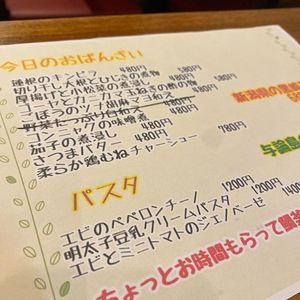 今日のおばんざい
蓮根のキンピラ 480円
切り干し大根とひじきの煮物 580円
厚揚げと小松菜の煮浸し 580円
ゴーヤとカニカマと玉ねぎの酢の物 580円
ごぼうのツナ胡麻マヨ和え 580円
野菜たっぷり白和え 480円
コンニャクの味噌煮 480円
茄子の煮浸し 480円
さつまバター 480円
柔らか鶏むねチャーシュー 780円
新潟県の
与論島
パスタ
エビのペペロンチーノ 1200円
明太子豆乳クリームパスタ 1200円
エビとミニトマトのジェノベーゼ 140
ちょっとお時間もらって